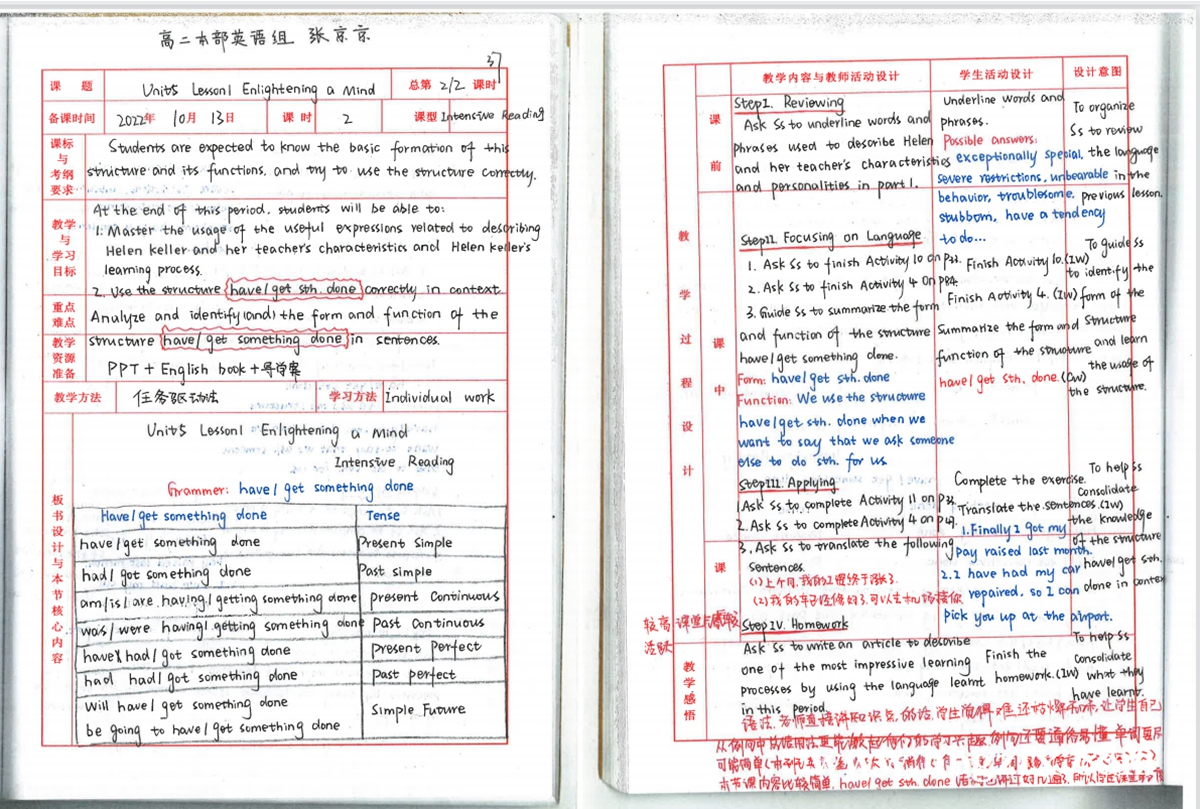 高二本部英语组 张京京
37
课 题 Unit5 Lesson1 Enlightening a Mind 总第 2/2 课时
备课时间 2022年 10月 13日 课时 2 课型 Intensive Reading
课标与考纲要求
Students are expected to know the basic formation of this
structure and its functions, and try to use the structure correctly.
教学与学习目标
At the end of this period, students will be able to:
1. Master the usage of the useful expressions related to describing
Helen Keller and her teacher's characteristics and Helen Keller's
learning process.
2. Use the structure have/get sth. done correctly in context.
重点难点
Analyze and identify (and) the form and function of the
structure have/get something done in sentences.
教学资源准备
PPT + English book + 导学案
教学方法 任务驱动法 学习方法 Individual work
板书设计与本节核心内容
Unit5 Lesson1 Enlightening a Mind
Intensive Reading
Grammer: have/get something done
Have/get something done Tense
have/get something done Present Simple
had/got something done Past simple
am/is/are having/getting something done present Continuous
was/were having/getting something done Past Continuous
have had/got something done present Perfect
had had/got something done Past perfect
Will have/get something done
be going to have/get something done
Simple Future
教学过程设计
教学内容与教师活动设计 学生活动设计 设计意图
课前
Step I. Reviewing
Ask Ss to underline words and
phrases used to describe Helen
and her teacher's characteristics
and personalities in part 1.
Underline words and
phrases.
Possible answers:
exceptionally special,
severe restrictions, unbearable
behavior, troublesome,
stubborn, have a tendency
to do...
To organize
Ss to review
the language
in the
previous lesson.
课中
Step II. Focusing on Language
1. Ask Ss to finish Activity 10 on P33.
2. Ask Ss to finish Activity 4 on P84.
3. Guide Ss to summarize the form
and function of the structure
have/get something done.
Form: have/get sth. done
Function: We use the structure
have/get sth. done when we
want to say that we ask someone
else to do sth. for us
Finish Activity 10. (IW)
Finish Activity 4. (IW)
Summarize the form and
function of the structure
have/get sth. done. (CW)
To guide Ss
to identify the
form of the
structure
and learn
the usage of
the structure.
Step III. Applying
1 Ask Ss to complete Activity 11 on P33.
2. Ask Ss to complete Activity 4 on
3. Ask Ss to translate the following
Sentences.
(1) 上个月,我的工资终于涨了.
(2) 我的车已经修好了,可以去机场接你
Complete the exercise.
Translate the sentences. (IW)
1. Finally I got my
pay raised last month.
2. I have had my car
repaired, so I can
Pick you up at the airport.
To help Ss
Consolidate
the knowledge
of the structure
have/get sth.
done in context
课
Step IV. Homework
Ask Ss to write an article to describe
one of the most impressive learning
processes by using the language learnt
in this period.
Finish the
homework. (IW)
To help Ss
Consolidate
what they
have learnt.
较高 课堂
活跃
教学感悟
语法,老师直接讲知识点的话,学生觉得难,还枯燥,让学生自己
从例句中总结用法更能激起他们的学习兴趣,例句还要通俗易懂,单词要尽
可能简单
本节课内容比较简单, have/get sth. done